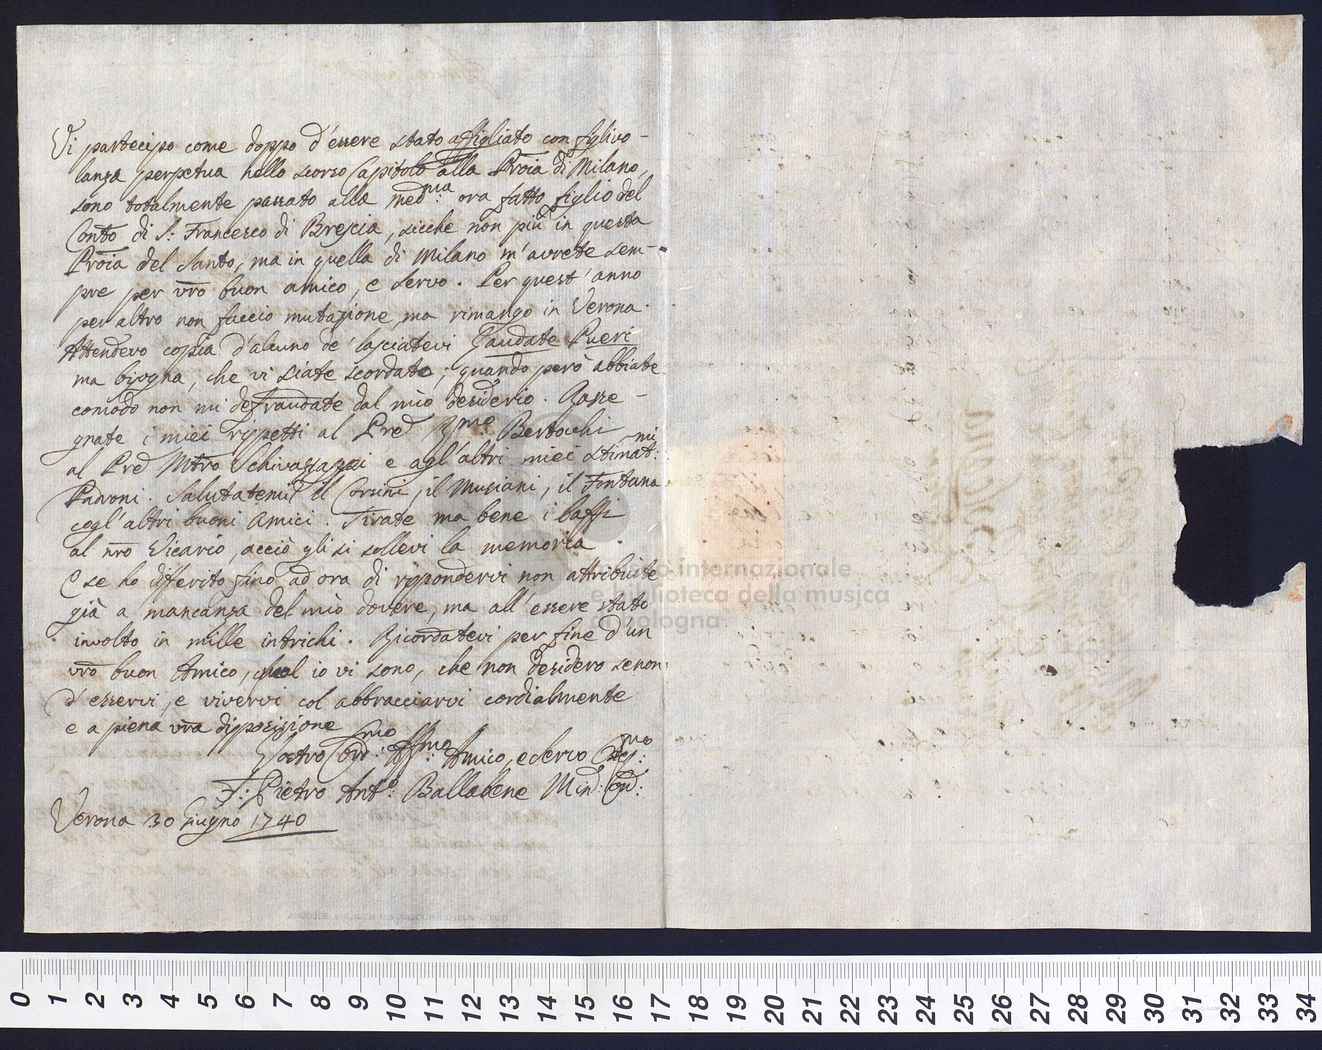 Vi partecipo come doppo d'essere stato affigliato con figlivo-
lanza perpetua nello scorso Capitolo alla Proia di Milano,
sono totalmente passato alla med:ma ora fatto figlio del
Conto di S. Francesco di Brescia, sicche non più in questa
Proia del Santo, ma in quella di Milano m'avrete sem-
pre per vro buon amico, e servo. Per quest'anno
per altro non faccio mutazione, ma rimango in Verona.
Attendevo copia d'alcuno de' lasciatevi Gaudate Pueri
ma bisogna, che vi siate scordato; quando però abbiate
comodo non mi defraudate dal mio desiderio. Rasse-
gnate i miei rispetti al Pre Rmo Bertocchi
al Pre Mtro Schivazzazzi e agl'altri miei stimat:mi
Padroni. Salutatemi il Corsini, il Musiani, il Fontana
cogl'altri buoni Amici. Tirate ma bene i baffi
al nro Vicario, acciò gli si sollevi la memoria.
E se ho differito fino ad ora di rispondervi non attribuite
già a mancanza del mio dovere, ma all'essere stato
involto in mille intrichi. Ricordatevi per fine d'un
vro buon Amico, qual io vi sono, che non desidero senon
d'esservi, e vivervi col abbracciarvi cordialmente
e a piena vra disposizione
Vostro Cord:mo Aff:mo Amico, e servo
F. Pietro Ant.o Ballabene Min: Con:
Verona 30 Giugno 1740
museo internazionale
e biblioteca della musica
di bologna
0 1 2 3 4 5 6 7 8 9 10 11 12 13 14 15 16 17 18 19 20 21 22 23 24 25 26 27 28 29 30 31 32 33 34